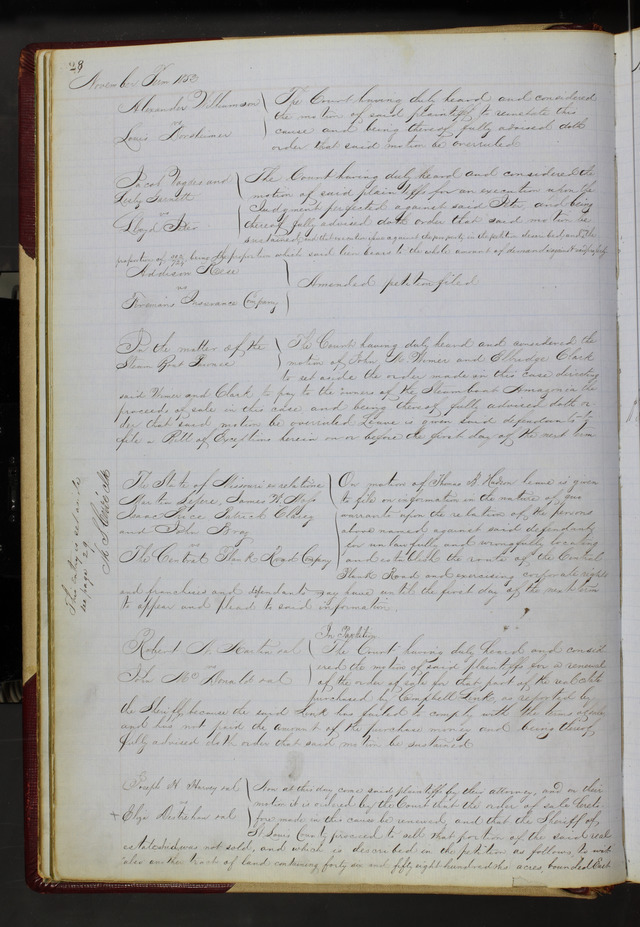 28
November Term 1853
Alexander Williamson
vs
Louis
The Court having duly heard and considered
the motion of said plaintiff to reinstate this
cause and being thereof fully advised doth
order that said motion be overruled
Jacob and
vs
Lloyd
The Court having duly heard and considered the
motion of said plaintiffs for an execution upon the
Judgment perfected against said and being
thereof fully advised doth order that said motion be
sustained, and that execution issue against the property in the petition described, and the
property of being the proportion which said bears to the whole amount of demand against
Addison
vs
Firemans Insurance Company
Amended petition filed
In the matter of the
Steam Boat
The Court having duly heard and considered the
motion of John M. Wimer and Eldridge Clark
to set aside the order made in this case directing
said Wimer and Clark to pay to the owners of the Steamboat Amazonia the
proceeds of sale in this case and being thereof fully advised doth or
der that said motion be overruled. Leave is given said defendants to
file a Bill of Exceptions herein on or before the first day of the next term
The State of Missouri ex relatione
Martin James H.
Isaac Patrick
and John
vs
The Central Plank Road Company
On motion of Thomas B. Hudson leave is given
to file an information in the nature of quo
warranto upon the relation of the persons
above named against said defendants
for unlawfully and wrongfully locating
and establish the route of the Central
Plank Road and exercising corporate rights
and franchises and defendants may have until the first day of the next term
to appear and plead to said information.
The entry is set aside
see page 29
Robert N. Martin et al
vs
John McDonald et al
In Partition
The Court having duly heard and consid
ered the motion of said plaintiffs for a renewal
of the order of sale for that part of the real estate
purchased by Campbell as reported by
the Sheriff because the said has failed to comply with the terms of sale
and has not paid the amount of the purchase money and being thereof
fully advised doth order that said motion be sustained
Joseph H. Harvey et al
vs
Eliza et al
Now at this day come said plaintiffs by their attorney, and on their
motion it is ordered by the Court that the order of sale hereto
fore made in this cause be renewed, and that the Sheriff of
St Louis County proceed to sell that portion of the said real
estate which was not sold, and which is described in the petition as follows, to wit
also another tract of land containing forty six and fifty eight hundredths acres, bounded East